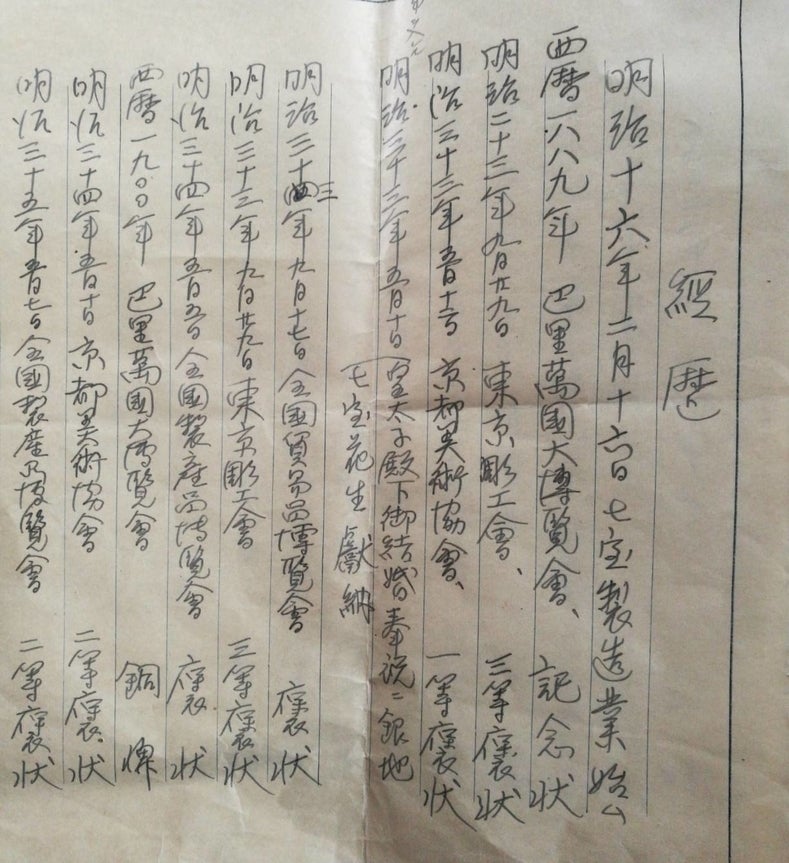 經歷
明治十六年二月十六日七宝製造業始ム
西暦一八八九年 巴里萬國大博覧會、 記念状
明治二十三年九月廿九日 東京彫工會、 三等褒状
明治三十三年五月十六日 京都美術協會、 一等褒状
明治三十三年五月十日 皇太子殿下御結婚奉祝ニ銀地
七宝花生献納
明治三十三年九月十七日 全國貿易品博覧會 褒状
明治三十三年九月廿九日 東京彫工會 三等褒状
明治三十四年五月五日 全國製産品博覧會 褒状
西暦一九〇〇年 巴里萬國大博覧會 銅牌
明治三十四年五月十日 京都美術協會 二等褒状
明治三十五年五月七日 全國製産品博覧會 二等褒状